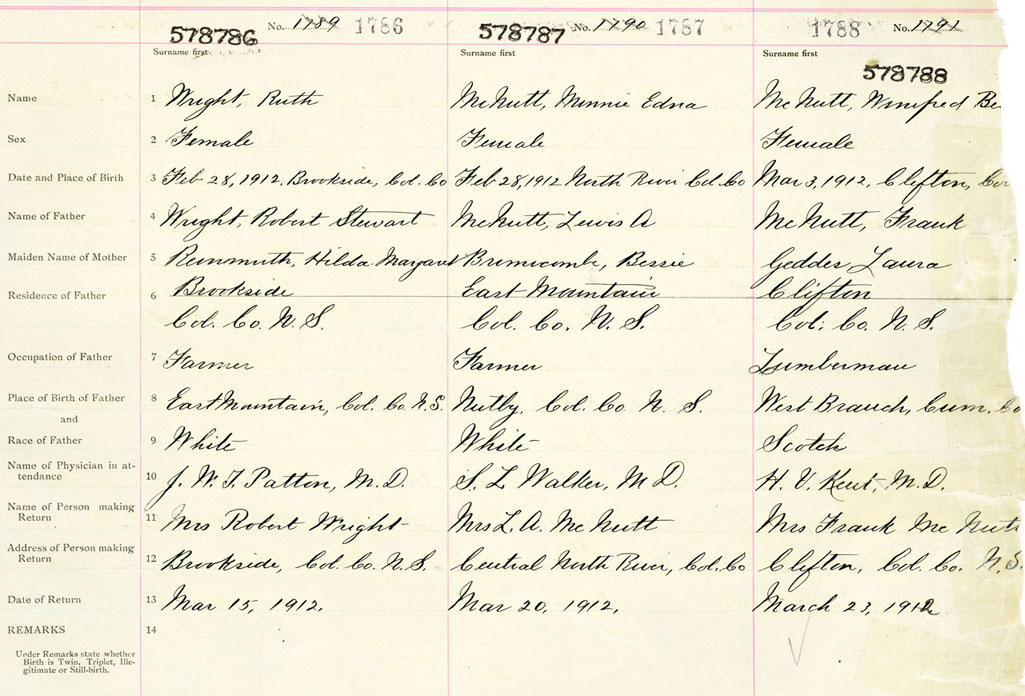 578786 No. 1789 1786 578787 No. 1790 1787 1788 No. 1791
Surname first Surname first Surname first
578788
Name 1 Wright, Ruth McNutt, Minnie Edna McNutt, Winifred Be
Sex 2 Female Female Female
Date and Place of Birth 3 Feb 28, 1912, Brookside, Col. Co Feb 28, 1912 North River Col. Co Mar 3, 1912, Clifton,
Name of Father 4 Wright, Robert Stewart McNutt, Lewis A McNutt, Frank
Maiden Name of Mother 5 Hilda Margaret Bessie Geddes Laura
Residence of Father 6 Brookside East Mountain Clifton
Col. Co. N. S. Col. Co. N. S. Col. Co. N. S.
Occupation of Father 7 Farmer Farmer Lumberman
Place of Birth of Father 8 East Mountain, Col. Co. N. S. Nutby, Col. Co N. S. West Branch, Cum. Co
and
Race of Father 9 White White Scotch
Name of Physician in at-
tendance 10 J. W. T. Patton, M. D. S. L Walker, M D. H. V. Kent, M. D.
Name of Person making
Return 11 Mrs Robert Wright Mrs L. A. McNutt Mrs Frank McNutt
Address of Person making
Return 12 Brookside, Col. Co. N. S. Central North River, Col. Co Clifton, Col. Co. N. S.
Date of Return 13 Mar 15, 1912. Mar 20, 1912. March 23, 1912
REMARKS 14
Under Remarks state whether
Birth is Twin, Triplet, Ille-
gitimate or Still-birth.